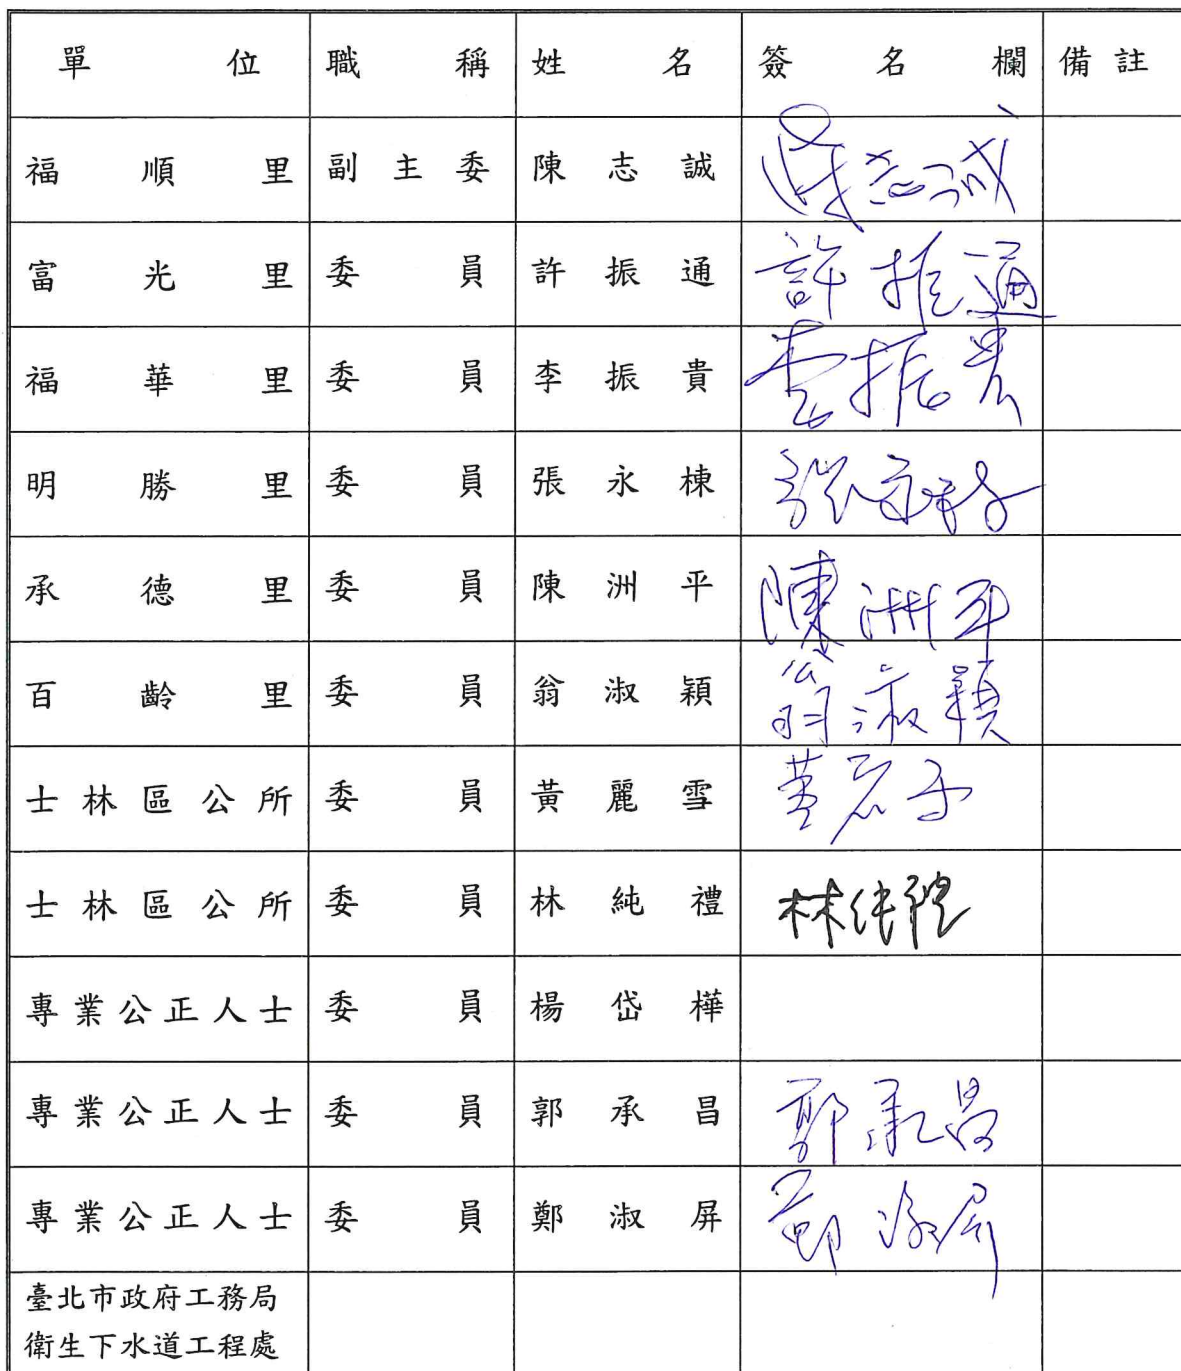 單位 職稱 姓名 簽名欄 備註
福順里 副主委 陳志誠 陳志誠
富光里 委員 許振通 許振通
福華里 委員 李振貴 李振貴
明勝里 委員 張永棟 張永棟
承德里 委員 陳洲平 陳洲平
百齡里 委員 翁淑穎 翁淑穎
士林區公所 委員 黃麗雪
士林區公所 委員 林純禮 林純禮
專業公正人士 委員 楊岱樺
專業公正人士 委員 郭承昌 郭承昌
專業公正人士 委員 鄭淑屏 鄭淑屏
臺北市政府工務局
衛生下水道工程處